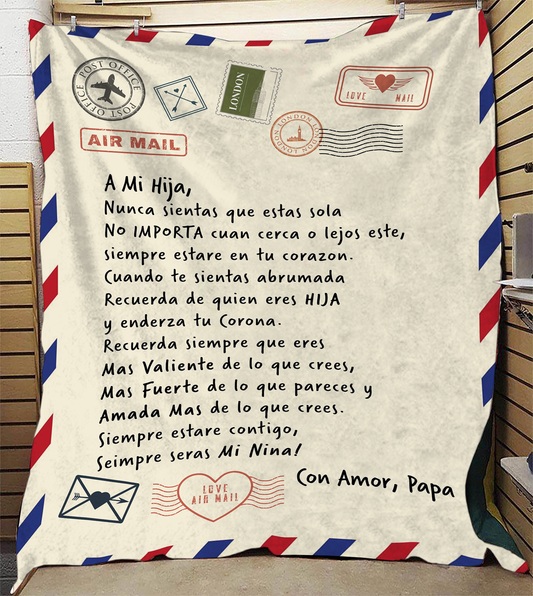 POST OFFICE
POST OFFICE
LONDON
LOVE MAIL
AIR MAIL
LONDON
LONDON
A Mi Hija,
Nunca sientas que estas sola
No IMPORTA cuan cerca o lejos este,
siempre estare en tu corazon.
Cuando te sientas abrumada
Recuerda de quien eres HIJA
y enderza tu Corona.
Recuerda siempre que eres
Mas Valiente de lo que crees,
Mas Fuerte de lo que pareces y
Amada Mas de lo que crees.
Siempre estare contigo,
Seimpre seras Mi Nina!
Con Amor, Papa
LOVE
AIR MAIL